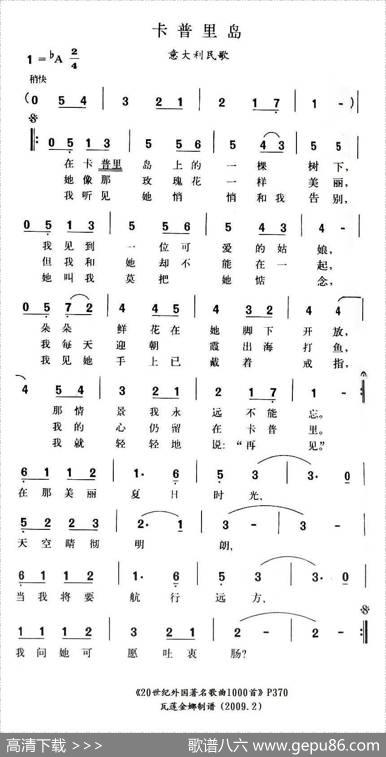 卡普里岛
意大利民歌
1=♭A 2/4
稍快
(0 5 4 | 3 2 1 | 2 1 7 | 1 - ) |
0 5 1 3 | 5 5 5 | 5 4 3 | 5 5
在卡普里 岛上的 一棵 树下,
她像那 玫瑰花 一样 美丽,
我听见 她悄 悄和我 告别,
0 5 1 3 | 5 5 5 | 5 4 3 | 4 -
我见到 一位可 爱的姑 娘,
但我和 她却不 能在一 起,
她叫我 莫把 她惦 念,
朵朵 鲜花在 她脚下 开放,
我每天 迎朝 霞出海 打鱼,
我见她 手上已 戴着 戒指,
4 5 4 | 3 2 1 | 2 1 7 | 1 -
那情 景我永 远不能 忘。
我的 心仍留 在卡普 里。
我就 轻轻地 说:“再 见。”
6 1 1 2 | 1· 6 | 5 3 | 3· 0
在那美丽 夏日 时光,
5 2 2 3 | 2· 1 | 3 - | 3 -
天空晴彻 明 朗,
6 1 1 2 | 1· 6 | 5 3 | 3· 0
当我将要 航行 远方,
我问她可 愿吐衷 肠?
《20世纪外国著名歌曲1000首》P370
瓦莲金娜制谱(2009.2)
高清下载 >>> 歌谱八六@www.gepu86.com